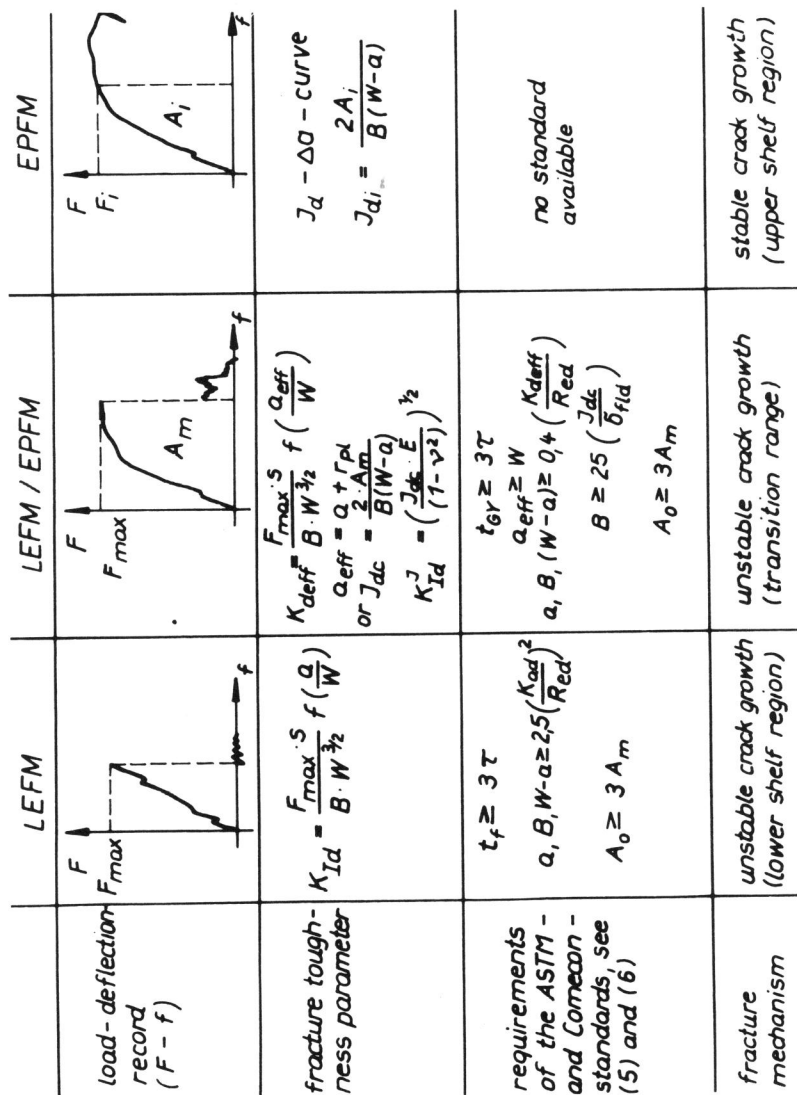 LEFM
LEFM / EPFM
EPFM
load-deflection-
record
(F - f)
F
Fmax
f
F
Fmax
Am
f
F
Fi
Ai
f
fracture tough-
ness parameter
K_Id = Fmax·S / B·W^3/2 f(a/W)
Kdeff = Fmax·S / B·W^3/2 f(aeff/W)
aeff = a + rpl
or Jdc = 2·Am / B(W-a)
K^J_Id = (Jdc·E / (1-ν²))^1/2
Jd - Δa - curve
Jdi = 2Ai / B(W-a)
requirements
of the ASTM -
and Comecon -
standards, see
(5) and (6)
tf ≥ 3τ
a, B, W-a ≥ 2,5(Kad/Red)²
A0 ≥ 3Am
tGY ≥ 3τ
aeff ≥ W
a, B, (W-a) ≥ 0,4(Kdeff/Red)
B ≥ 25(Jdc/σfld)
A0 ≥ 3Am
no standard
available
fracture
mechanism
unstable crack growth
(lower shelf region)
unstable crack growth
(transition range)
stable crack growth
(upper shelf region)